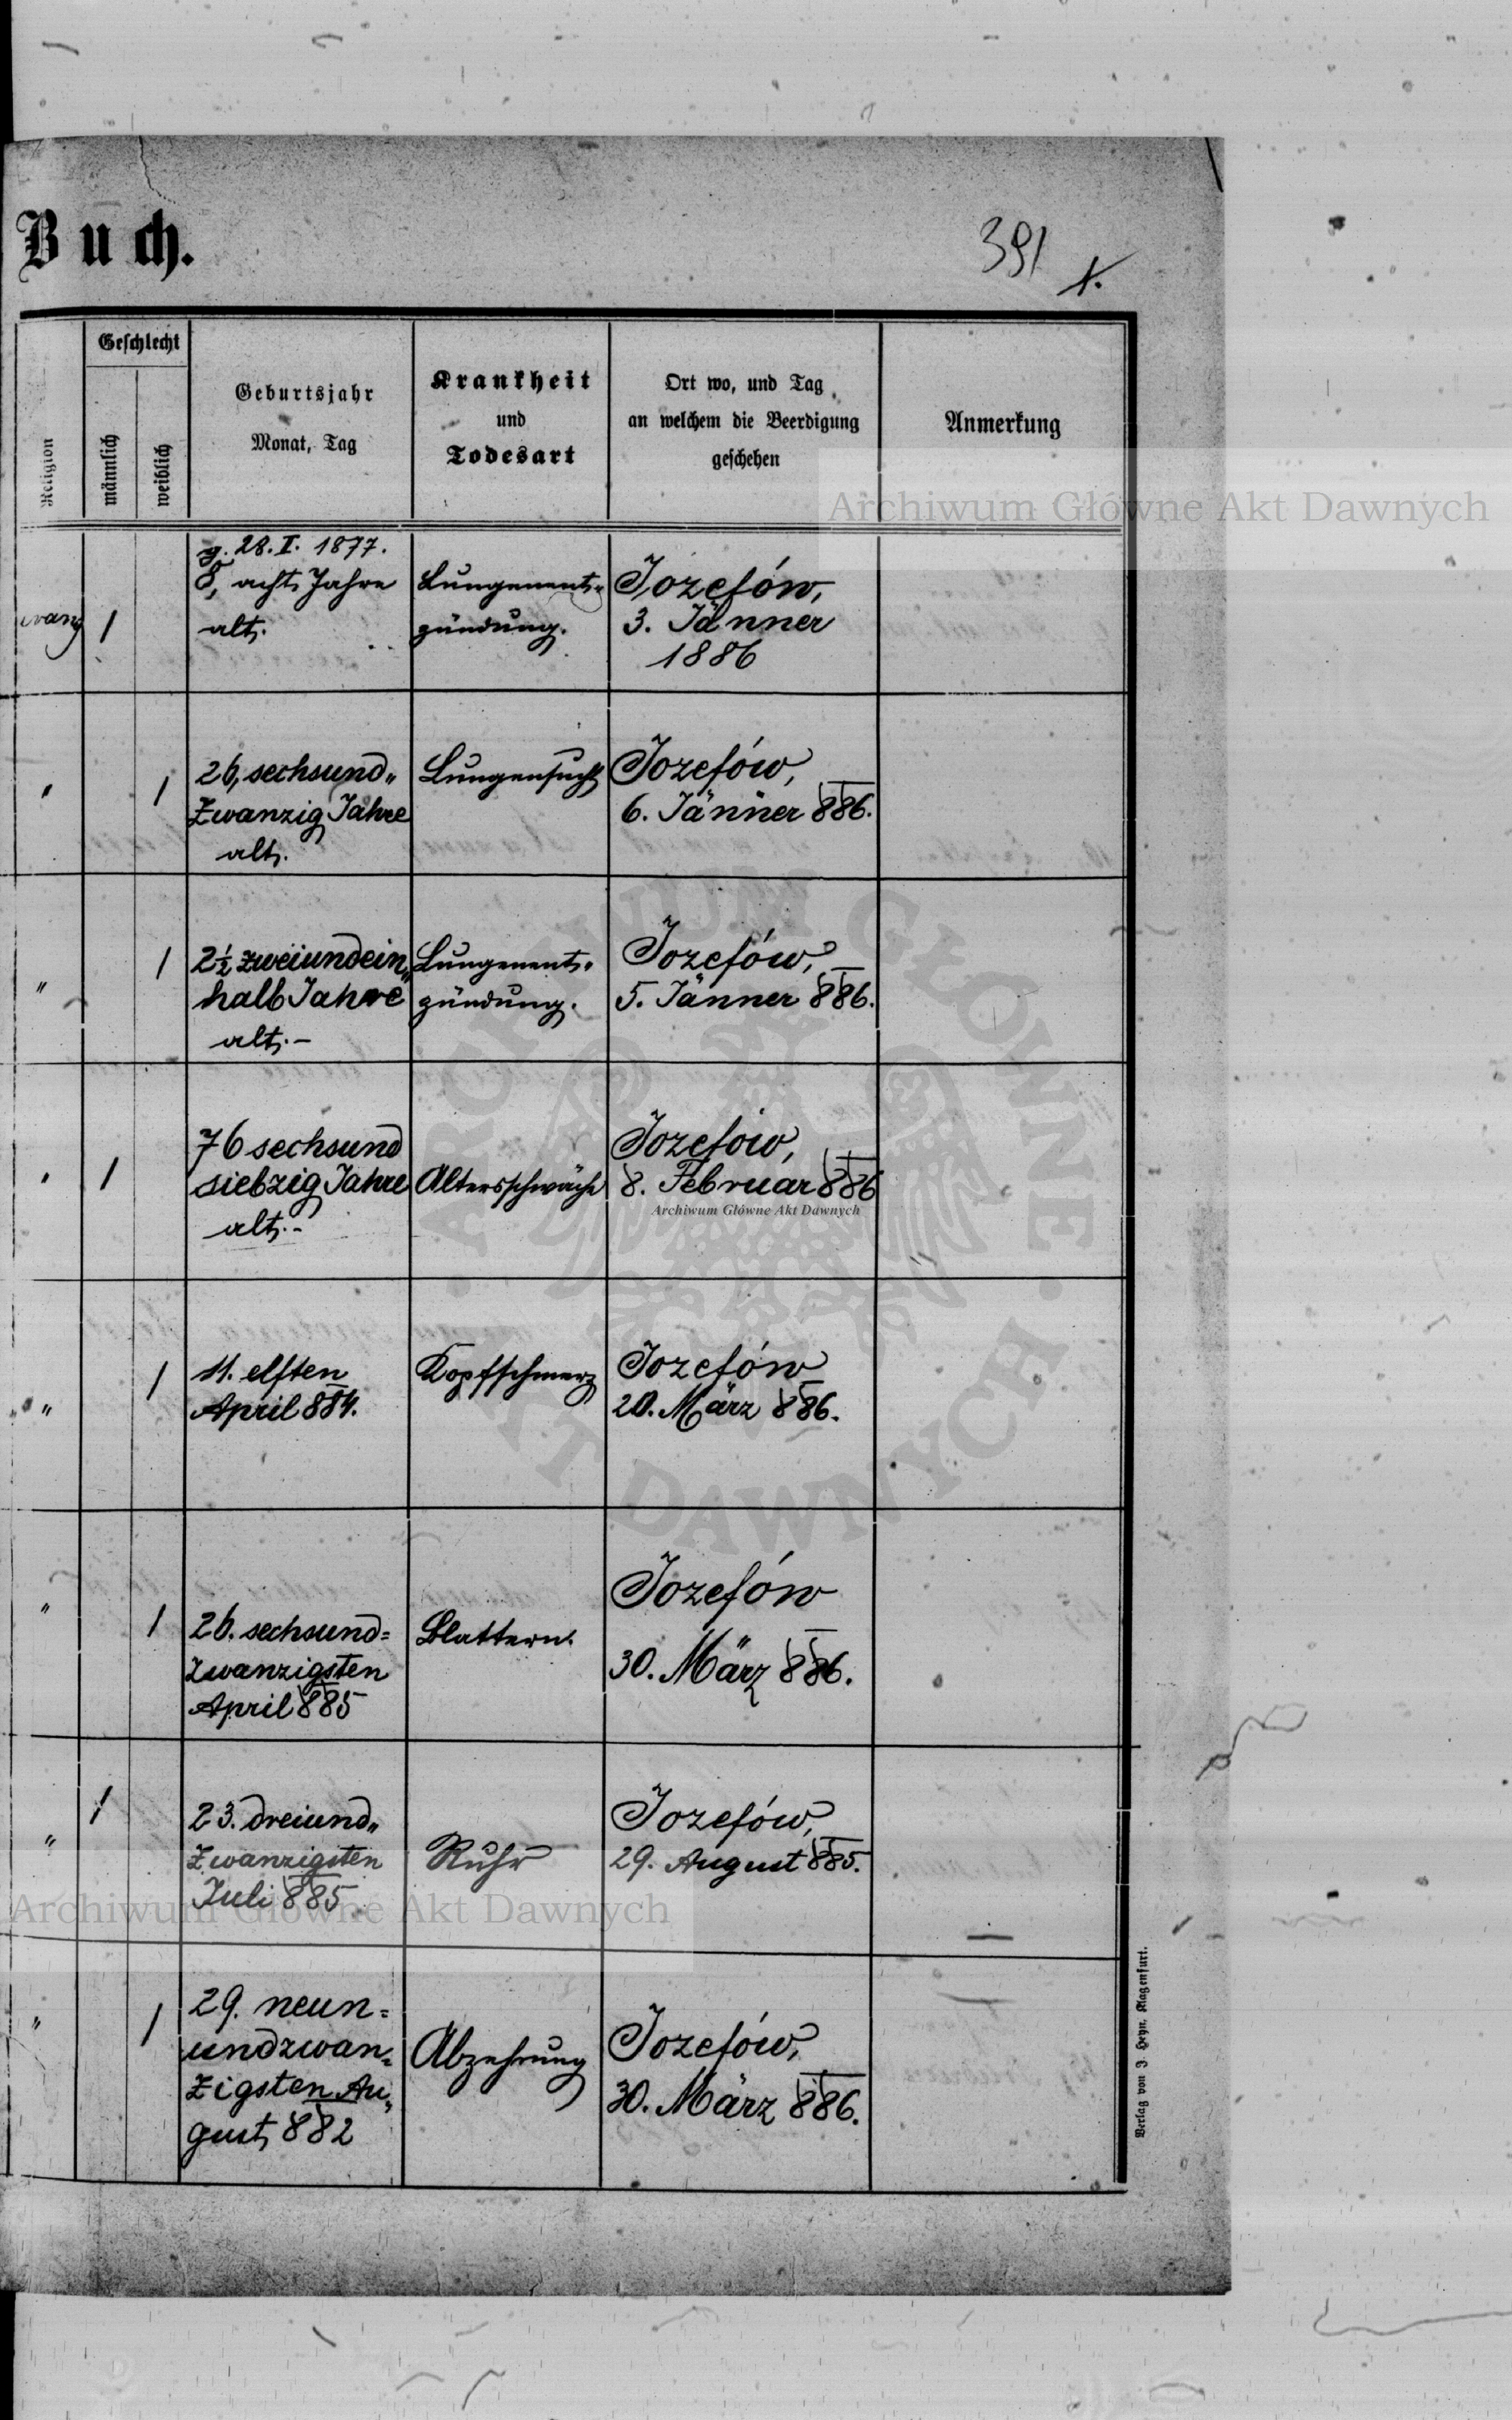 Buch.
391
1.
Religion
Geschlecht
männlich
weiblich
Geburtsjahr
Monat, Tag
Krankheit
und
Todesart
Ort wo, und Tag
an welchem die Beerdigung
geschehen
Anmerkung
Archiwum Główne Akt Dawnych
evang
1
g. 28. I. 1877.
8, acht Jahre
alt.
Lungenent-
zündung.
Jozefów,
3. Jänner
1886
"
1
26, sechsund„
Zwanzig Jahre
alt.
Lungensucht
Jozefów,
6. Jänner 886.
"
1
2½ zweiundein„
halb Jahre
alt.-
Lungenent-
zündung.
Jozefów,
5. Jänner 886.
"
1
76 sechsund
siebzig Jahre
alt.-
Altersschwäche
Jozefów,
8. Februar 886
Archiwum Główne Akt Dawnych
"
1
11. elften
April 884.
Kopfschmerz
Jozefów
20. März 886.
"
1
26. sechsund=
Zwanzigsten
April 885
Blattern.
Jozefów
30. März 886.
"
1
23. dreiund„
Zwanzigsten
Juli 885
Ruhr
Jozefów,
29. August 885.
Archiwum Główne Akt Dawnych
"
1
29. neun=
undzwan=
Zigsten Au„
gust 882
Abzehrung
Jozefów,
30. März 886.
Verlag von J. Heyn, Klagenfurt.
ARCHIWUM GŁÓWNE AKT DAWNYCH